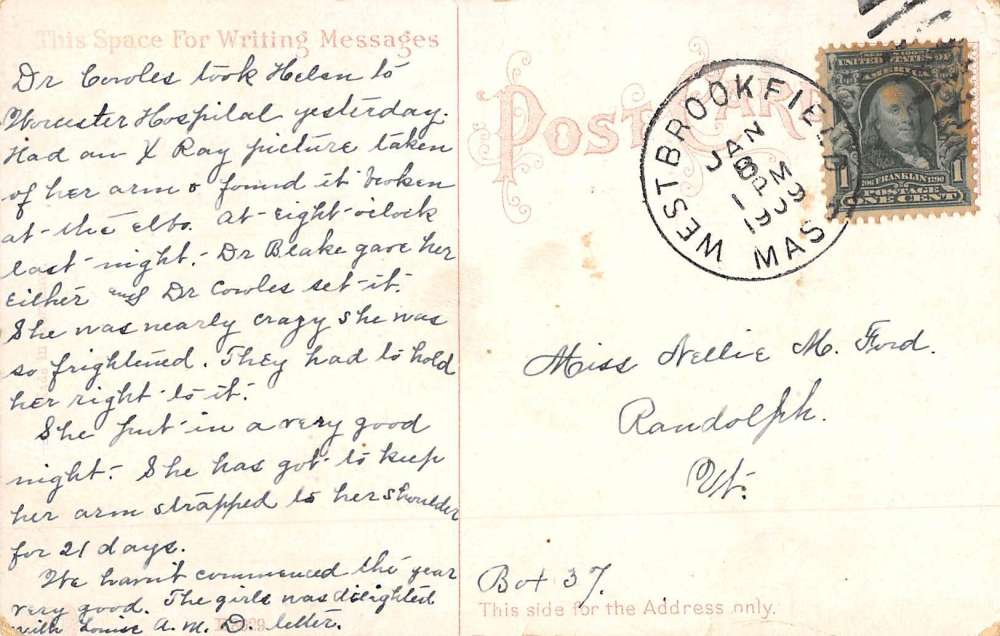 This Space For Writing Messages
Dr Cowles took Helen to
Worcester Hospital yesterday.
Had an X Ray picture taken
of her arm & found it broken
at the elbo. at eight o'clock
last night. Dr Blake gave her
Either and Dr Cowles set it.
She was nearly crazy she was
so frightened. They had to hold
her right to it.
She put in a very good
night. She has got to keep
her arm strapped to her shoulder
for 21 days.
We havn't commenced the year
very good. The girls was delighted
with Louise A. M. D. letter.
POST CARD
WEST BROOKFIELD
MASS
JAN
8
1 PM
1909
SERIES 1902
UNITED STATES OF
AMERICA
1706 FRANKLIN 1790
1 1
POSTAGE
ONE CENT
Miss Nellie M. Ford.
Randolph.
Vt.
Box 37.
This side for the Address only.